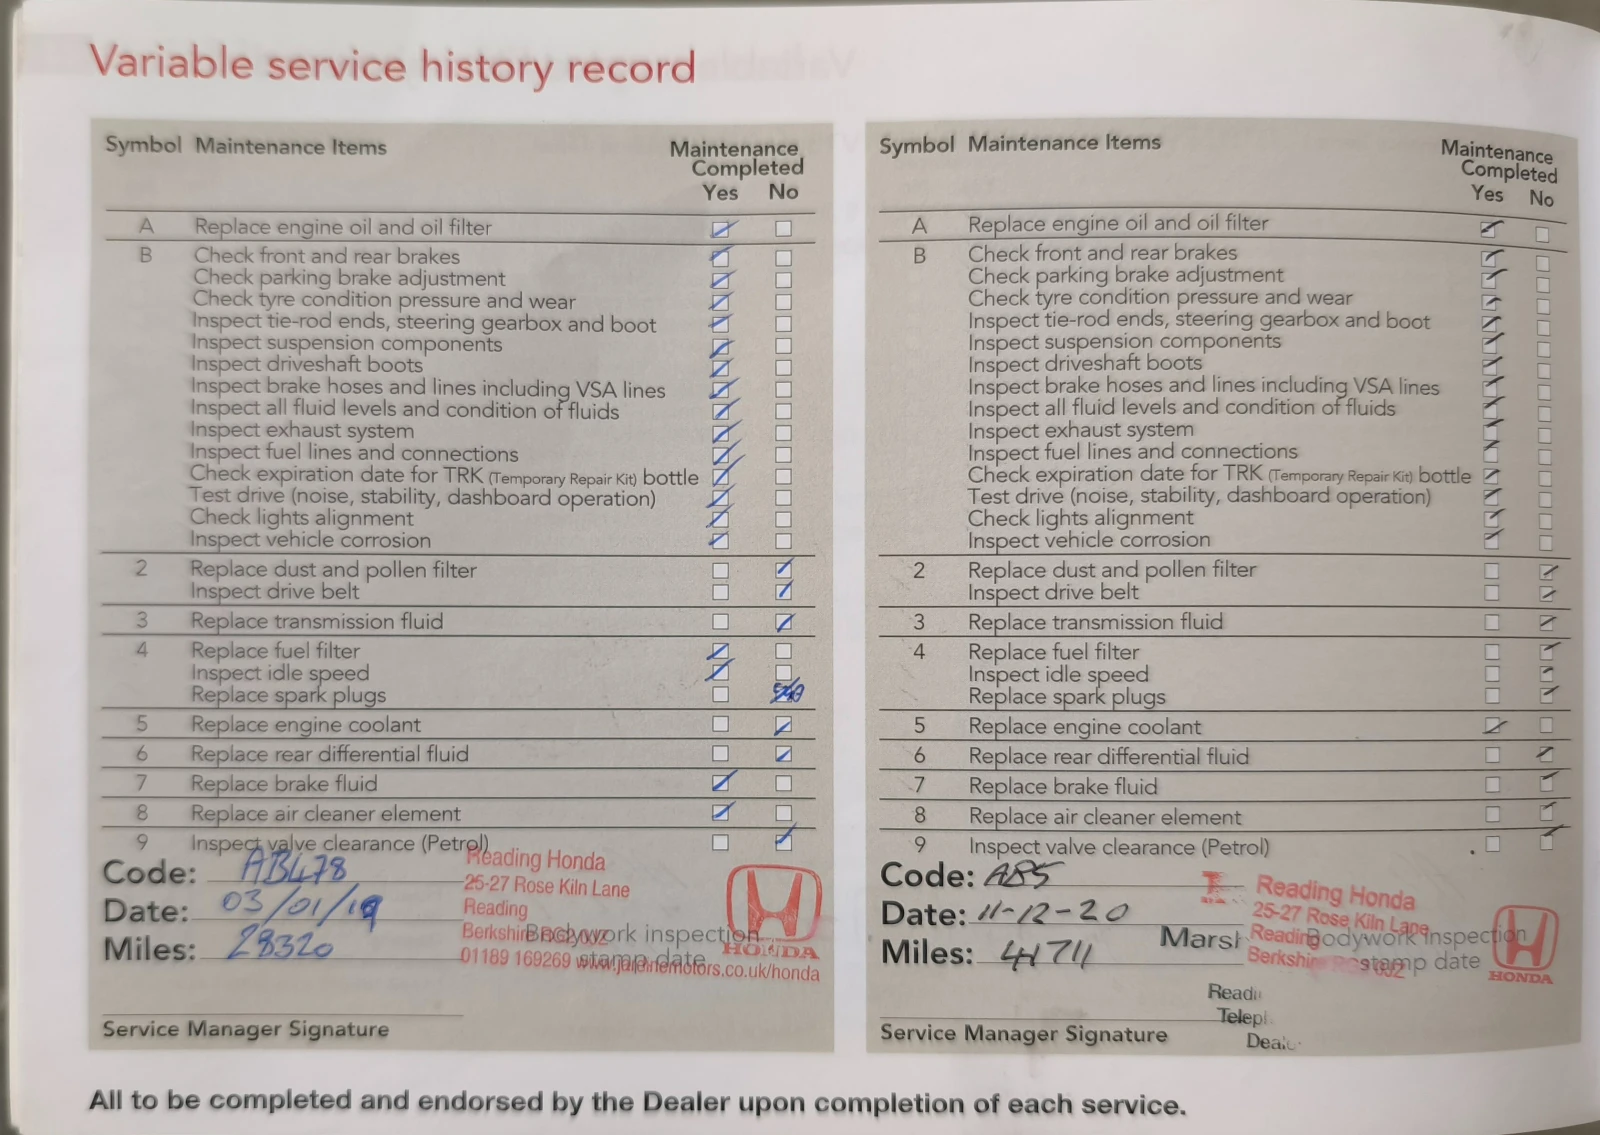 Variable service history record
Symbol Maintenance Items Maintenance Completed Yes No
A Replace engine oil and oil filter
B Check front and rear brakes
Check parking brake adjustment
Check tyre condition pressure and wear
Inspect tie-rod ends, steering gearbox and boot
Inspect suspension components
Inspect driveshaft boots
Inspect brake hoses and lines including VSA lines
Inspect all fluid levels and condition of fluids
Inspect exhaust system
Inspect fuel lines and connections
Check expiration date for TRK (Temporary Repair Kit) bottle
Test drive (noise, stability, dashboard operation)
Check lights alignment
Inspect vehicle corrosion
2 Replace dust and pollen filter
Inspect drive belt
3 Replace transmission fluid
4 Replace fuel filter
Inspect idle speed
Replace spark plugs
5 Replace engine coolant
6 Replace rear differential fluid
7 Replace brake fluid
8 Replace air cleaner element
9 Inspect valve clearance (Petrol)
Code: AB478
Date: 03/01/19
Miles: 28320
Reading Honda
25-27 Rose Kiln Lane
Reading
Berkshire
01189 169269
HONDA
Bodywork inspection
stamp date
Service Manager Signature
Symbol Maintenance Items Maintenance Completed Yes No
A Replace engine oil and oil filter
B Check front and rear brakes
Check parking brake adjustment
Check tyre condition pressure and wear
Inspect tie-rod ends, steering gearbox and boot
Inspect suspension components
Inspect driveshaft boots
Inspect brake hoses and lines including VSA lines
Inspect all fluid levels and condition of fluids
Inspect exhaust system
Inspect fuel lines and connections
Check expiration date for TRK (Temporary Repair Kit) bottle
Test drive (noise, stability, dashboard operation)
Check lights alignment
Inspect vehicle corrosion
2 Replace dust and pollen filter
Inspect drive belt
3 Replace transmission fluid
4 Replace fuel filter
Inspect idle speed
Replace spark plugs
5 Replace engine coolant
6 Replace rear differential fluid
7 Replace brake fluid
8 Replace air cleaner element
9 Inspect valve clearance (Petrol)
Code: AB5
Date: 11-12-20
Miles: 41711
Reading Honda
25-27 Rose Kiln Lane
Reading
HONDA
Bodywork inspection
stamp date
Service Manager Signature
All to be completed and endorsed by the Dealer upon completion of each service.